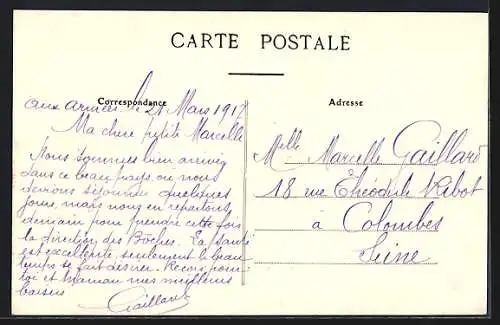 CARTE POSTALE
Correspondance
Adresse
aux armées le 21 Mars 1917
Ma chere petite Marcelle
Nous sommes bien arrivés
dans ce beau pays ou nous
devions séjourner quelques
jours, mais nous en repartons
demain pour prendre cette fois
la direction des Bôches. La santé
est excellente seulement le beau
temps se fait désirer. Recois pour
toi et maman mes meilleurs
baisers
Gaillard
Melle Marcelle Gaillard
18 rue Théodule Ribot
à Colombes
Seine